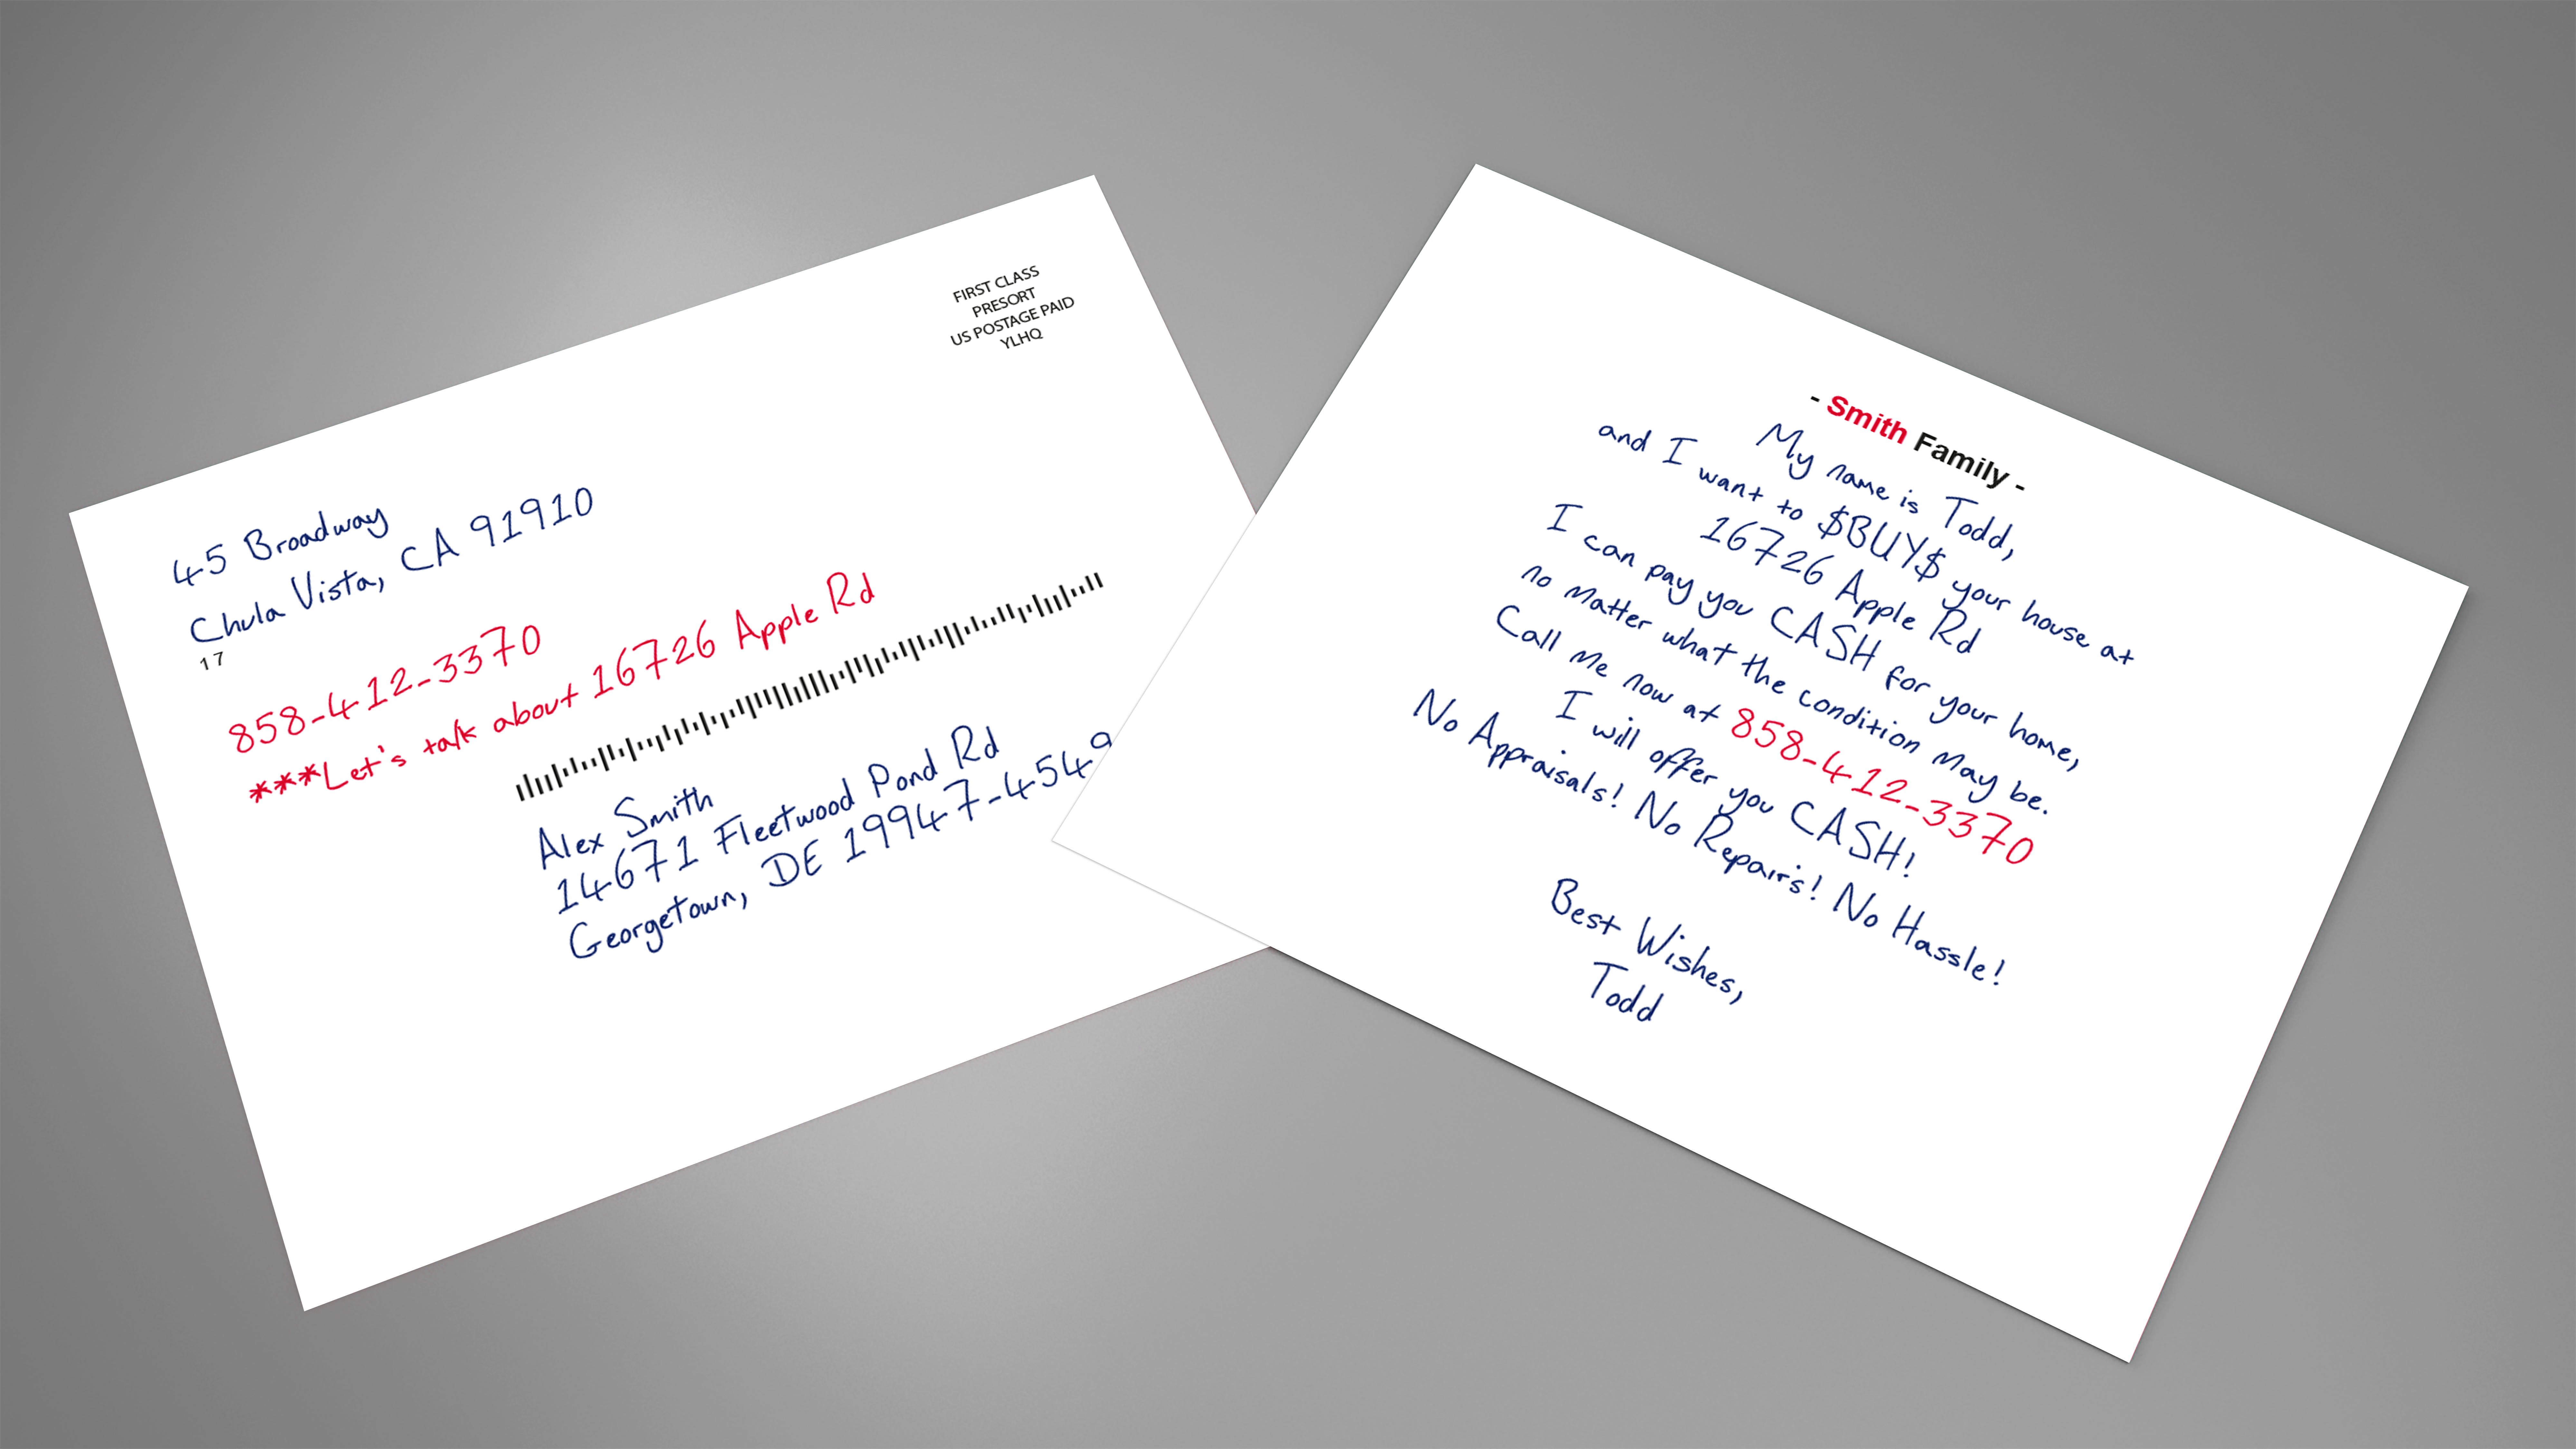 FIRST CLASS
PRESORT
US POSTAGE PAID
YLHQ
45 Broadway
Chula Vista, CA 91910
17
858-412-3370
***Let's talk about 16726 Apple Rd
Alex Smith
14671 Fleetwood Pond Rd
Georgetown, DE 19947-4549
- Smith Family -
My name is Todd,
and I want to $BUY$ your house at
16726 Apple Rd
I can pay you CASH for your home,
no matter what the condition may be.
Call me now at 858-412-3370
I will offer you CASH!
No Appraisals! No Repairs! No Hassle!
Best Wishes,
Todd